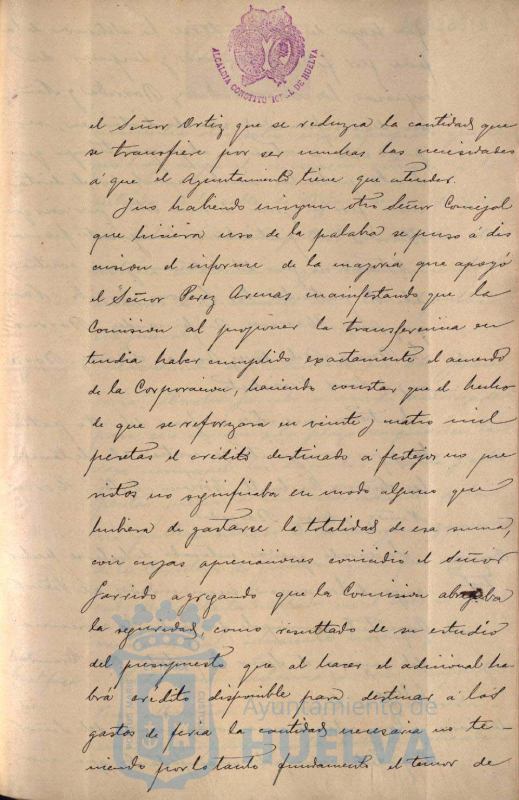 ALCALDIA CONSTITUCIONAL DE HUELVA
el Señor Ortiz que se reduzca la cantidad que
se transfiere por ser muchas las necesidades
á que el Ayuntamiento tiene que atender.
Y no habiendo ningun otro Señor Concejal
que hiciera uso de la palabra se puso á dis
cusion el informe de la mayoria que apoyó
el Señor Perez Arenas manifestando que la
Comision al proponer la transferencia en
tendia haber cumplido exactamente el acuerdo
de la Corporacion, haciendo constar que el hecho
de que se reforzara en veinte y cuatro mil
pesetas el crédito destinado á festejos no pre
vistos no significaba en modo alguno que
hubiera de gastarse la totalidad de esa suma,
con cuyas apreciaciones coincidió el Señor
Garrido agregando que la Comision abrigaba
la seguridad, como resultado de su estudio
del presupuesto que al hacer el adicional ha
brá crédito disponible para destinar á los
gastos de feria la cantidad necesaria no te-
niendo por lo tanto fundamento el temor de
Ayuntamiento de
HUELVA